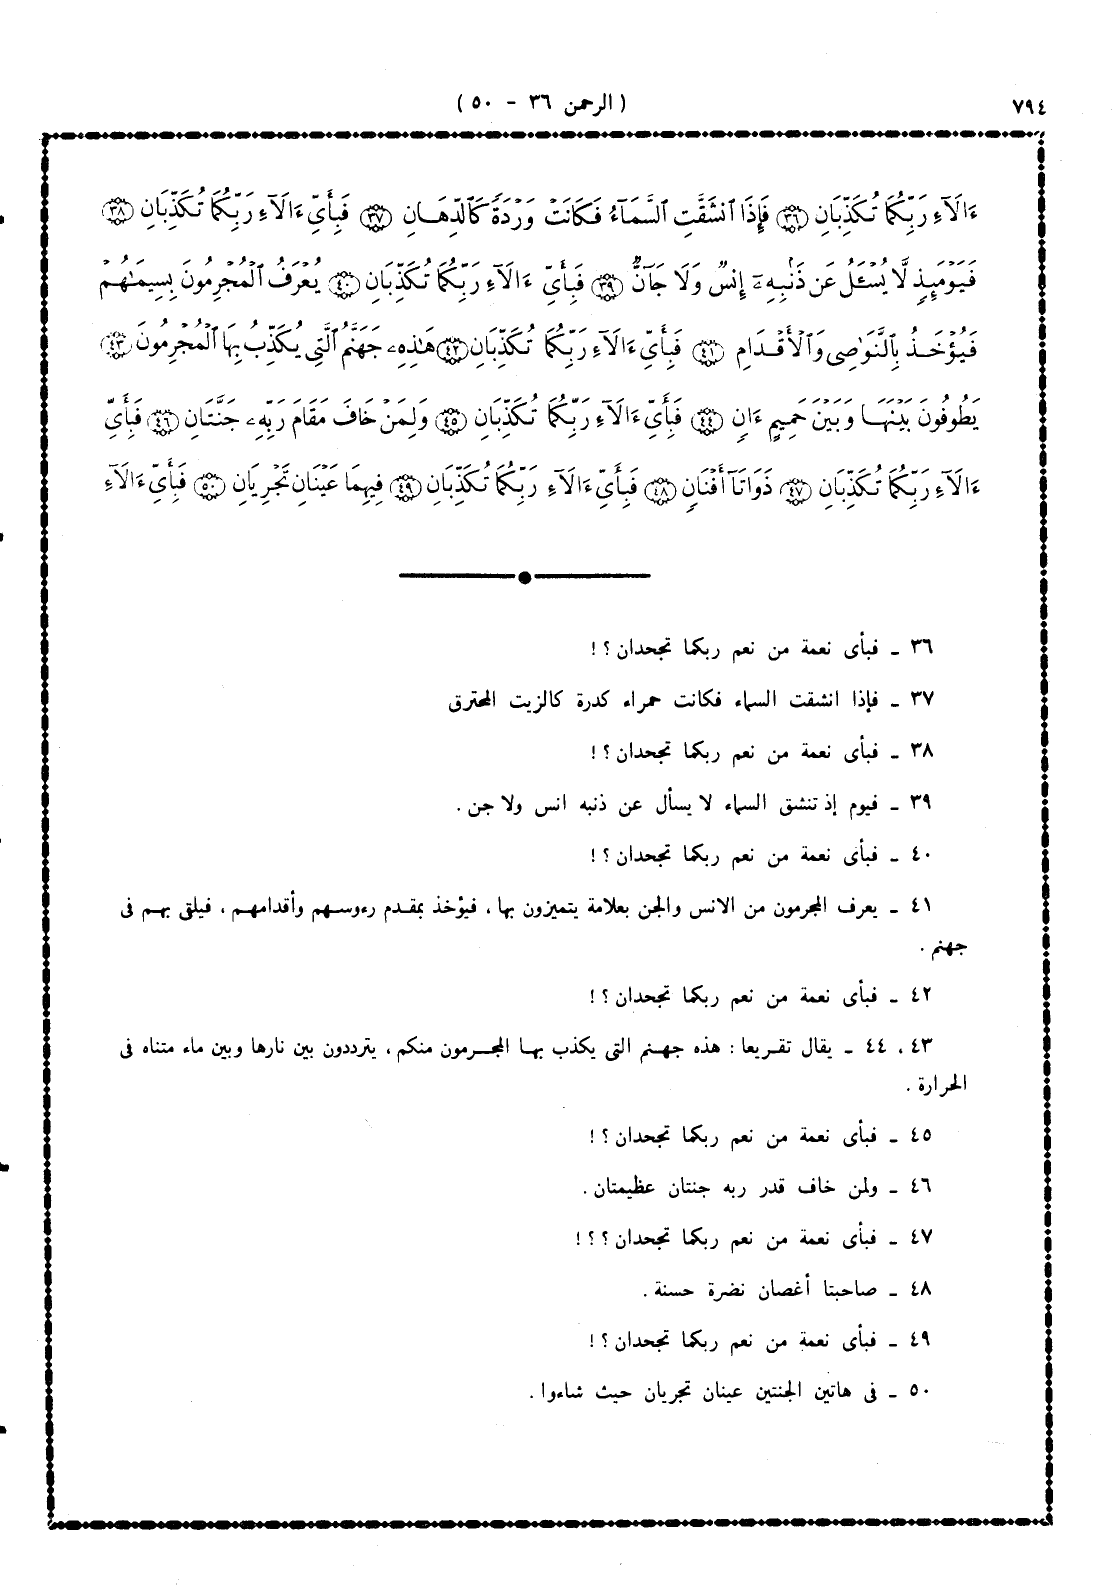 ٧٩٤
( الرحمن ٣٦ - ٥٠ )
ءَالَآءِ رَبِّكُمَا تُكَذِّبَانِ ٣٦ فَإِذَا ٱنشَقَّتِ ٱلسَّمَآءُ فَكَانَتْ وَرْدَةً كَٱلدِّهَانِ ٣٧ فَبِأَىِّ ءَالَآءِ رَبِّكُمَا تُكَذِّبَانِ ٣٨
فَيَوْمَئِذٍ لَّا يُسْـَٔلُ عَن ذَنۢبِهِۦٓ إِنسٌ وَلَا جَآنٌّ ٣٩ فَبِأَىِّ ءَالَآءِ رَبِّكُمَا تُكَذِّبَانِ ٤٠ يُعْرَفُ ٱلْمُجْرِمُونَ بِسِيمَٰهُمْ
فَيُؤْخَذُ بِٱلنَّوَٰصِى وَٱلْأَقْدَامِ ٤١ فَبِأَىِّ ءَالَآءِ رَبِّكُمَا تُكَذِّبَانِ ٤٢ هَٰذِهِۦ جَهَنَّمُ ٱلَّتِى يُكَذِّبُ بِهَا ٱلْمُجْرِمُونَ ٤٣
يَطُوفُونَ بَيْنَهَا وَبَيْنَ حَمِيمٍ ءَانٍ ٤٤ فَبِأَىِّ ءَالَآءِ رَبِّكُمَا تُكَذِّبَانِ ٤٥ وَلِمَنْ خَافَ مَقَامَ رَبِّهِۦ جَنَّتَانِ ٤٦ فَبِأَىِّ
ءَالَآءِ رَبِّكُمَا تُكَذِّبَانِ ٤٧ ذَوَاتَآ أَفْنَانٍ ٤٨ فَبِأَىِّ ءَالَآءِ رَبِّكُمَا تُكَذِّبَانِ ٤٩ فِيهِمَا عَيْنَانِ تَجْرِيَانِ ٥٠ فَبِأَىِّ ءَالَآءِ
٣٦ ـ فبأى نعمة من نعم ربكما تجحدان ؟ !
٣٧ ـ فإذا انشقت السماء فكانت حمراء كدرة كالزيت المحترق
٣٨ ـ فبأى نعمة من نعم ربكما تجحدان ؟ !
٣٩ ـ فيوم إذ تنشق السماء لا يسأل عن ذنبه انس ولا جن .
٤٠ ـ فبأى نعمة من نعم ربكما تجحدان ؟ !
٤١ ـ يعرف المجرمون من الانس والجن بعلامة يتميزون بها ، فيؤخذ بمقدم رءوسهم وأقدامهم ، فيلقى بهم فى
جهنم .
٤٢ ـ فبأى نعمة من نعم ربكما تجحدان ؟ !
٤٣ ، ٤٤ ـ يقال تقريعا : هذه جهنم التى يكذب بها المجرمون منكم ، يترددون بين نارها وبين ماء متناه فى
الحرارة .
٤٥ ـ فبأى نعمة من نعم ربكما تجحدان ؟ !
٤٦ ـ ولمن خاف قدر ربه جنتان عظيمتان .
٤٧ ـ فبأى نعمة من نعم ربكما تجحدان ؟ ؟ !
٤٨ ـ صاحبتا أغصان نضرة حسنة .
٤٩ ـ فبأى نعمة من نعم ربكما تجحدان ؟ !
٥٠ ـ فى هاتين الجنتين عينان تجريان حيث شاءوا .